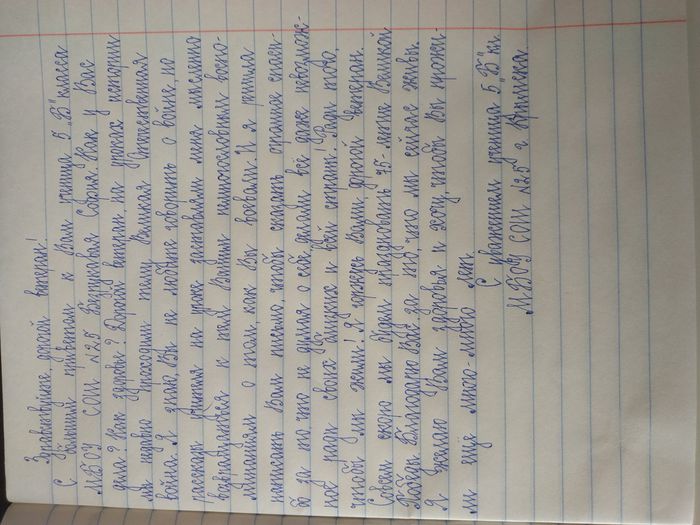 Здравствуйте, дорогой ветеран!
С большим приветом к Вам ученица 5 „Б" класса
МБОУ СОШ №25 София. Как у Вас
дела? Как здоровье? Дорогой ветеран, на уроках истории
мы недавно проходили тему Великая Отечественная
война. Я знаю, Вы не любите говорить о войне, но
рассказ учителя на уроке заставлял меня мысленно
возвращаться к тем Вашим немногословным воспо-
минаниям о том, как Вы воевали. И я решила
написать Вам письмо, чтобы сказать огромное спаси-
бо за то, что не думая о себе делали всё даже невозмож-
ное ради своих близких и всей страны! Ради того,
чтобы мы жили! Я горжусь Вами дорогой ветеран.
Совсем скоро мы будем праздновать 75-летие Великой
Победы. Благодарю Вас за то, что мы сейчас живы.
Я желаю Вам здоровья и хочу, чтобы Вы прожи-
ли ещё много-много лет.
С уважением ученица 5 „Б" кл.
МБОУ СОШ №25 г.